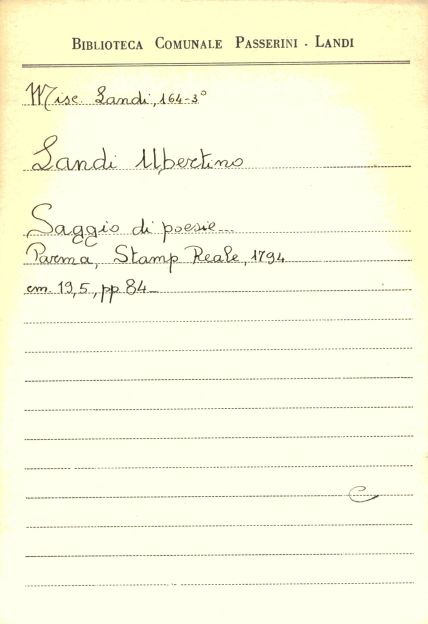 BIBLIOTECA COMUNALE PASSERINI - LANDI
Misc. Landi, 164-3°
Landi Ubertino
Saggio di poesie...
Parma, Stamp Reale, 1794
cm. 19,5, pp 84
C